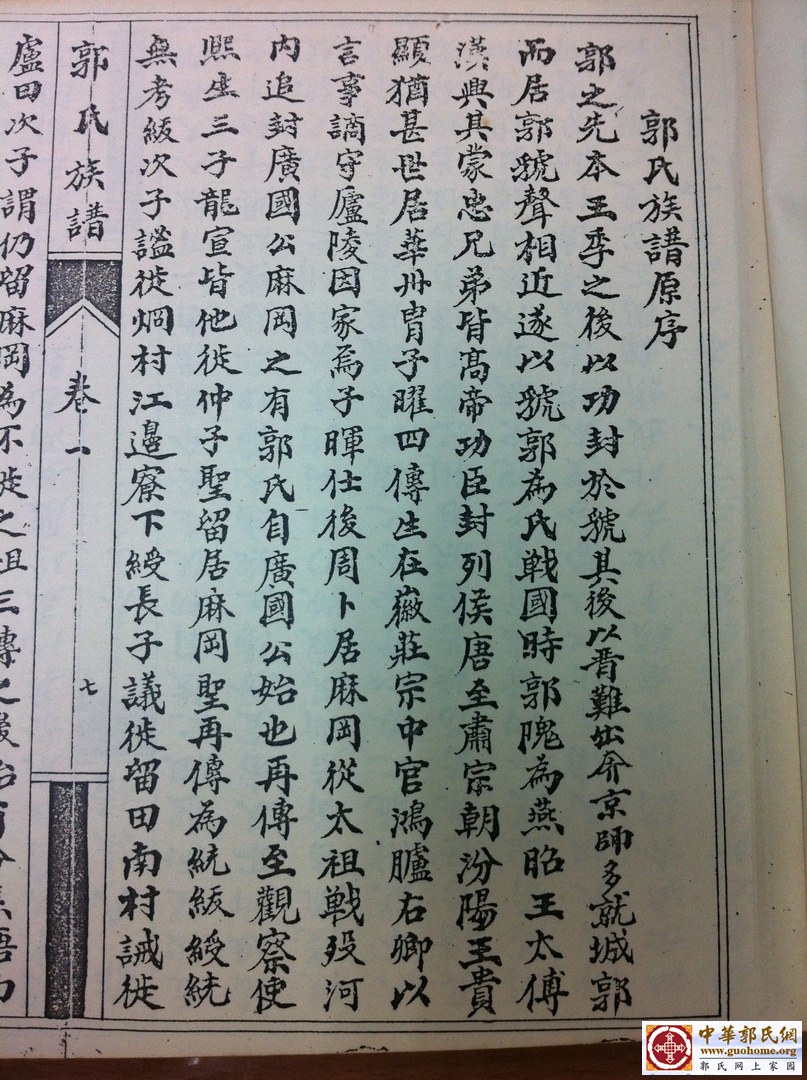 郭氏族譜原序
郭之先本王季之後以功封於虢其後以晋難出奔京師多就城郭
而居郭虢聲相近遂以虢郭為氏戰國時郭隗為燕昭王太傅
漢興其蒙忠兄弟皆高帝功臣封列侯唐至肅宗朝汾陽王貴
顯猶甚世居華州曺子曜四傳生在嶶莊宗中官鴻臚右卿以
言事謫守廬陵因家焉子暉仕後周卜居麻岡從太祖戰殁河
内追封廣國公麻岡之有郭氏自廣國公始也再傳至觀察使
熈生三子龍宣皆他徙仲子聖留居麻岡聖再傳為統綬綬統
無考綬次子謐徙烱村江邉寮下綬長子議徙留田南村誠徙
郭氏族譜
卷一
七
廬田次子謂仍留麻岡為不徙之祖三傳之後始有分
中華郭氏網
www.guohome.org
郭氏网上家园